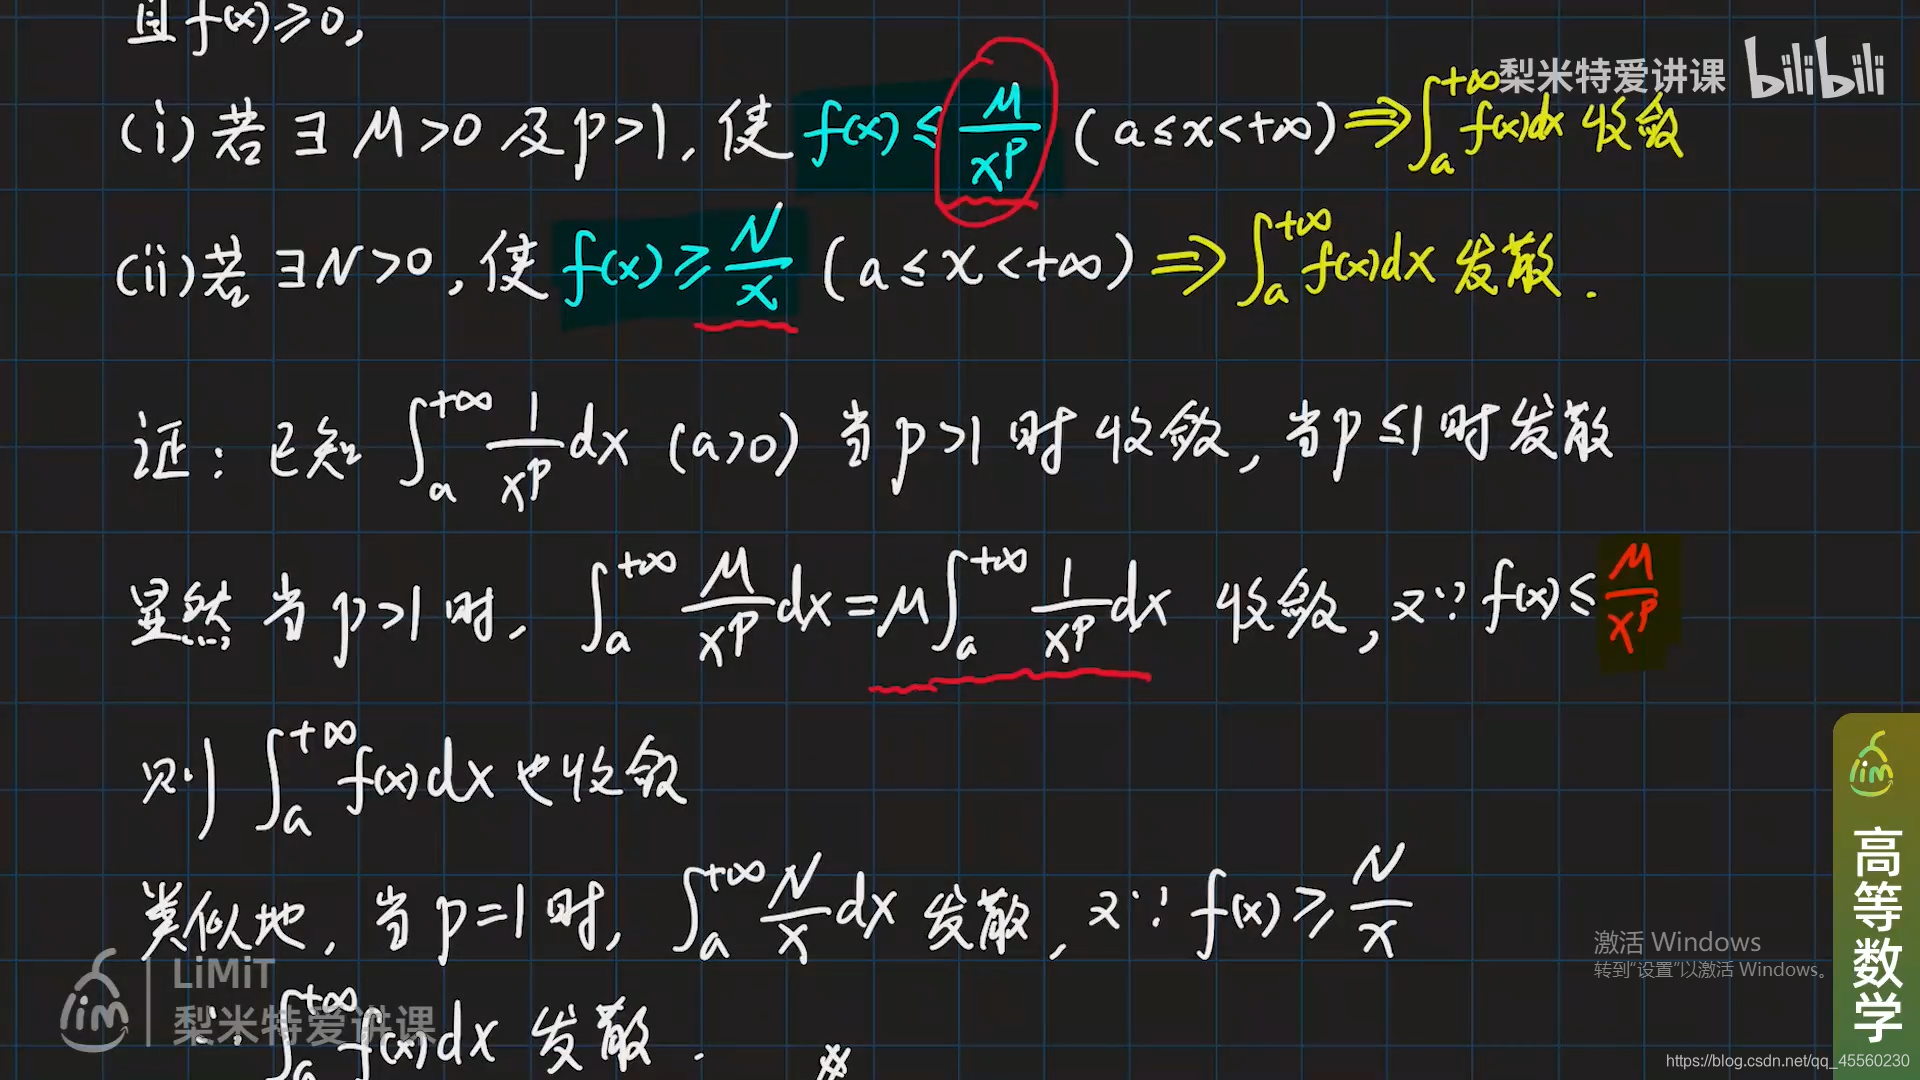 且 f(x)≥0,
梨米特爱讲课 bilibili
(i) 若 ∃ M>0 及 p>1, 使 f(x) ≤ M/x^p (a≤x<+∞) ⇒ ∫_a^{+∞} f(x)dx 收敛
(ii) 若 ∃ N>0, 使 f(x) ≥ N/x (a≤x<+∞) ⇒ ∫_a^{+∞} f(x)dx 发散.
证: 已知 ∫_a^{+∞} 1/x^p dx (a>0) 当 p>1 时 收敛, 当 p≤1 时 发散
显然 当 p>1 时, ∫_a^{+∞} M/x^p dx = M∫_a^{+∞} 1/x^p dx 收敛, 又∵ f(x) ≤ M/x^p
则 ∫_a^{+∞} f(x)dx 也收敛
类似地, 当 p=1 时, ∫_a^{+∞} N/x dx 发散, 又∵ f(x) ≥ N/x
∴ ∫_a^{+∞} f(x)dx 发散. #
lim
高等数学
激活 Windows
转到"设置"以激活 Windows。
lim LiMiT
梨米特爱讲课
https://blog.csdn.net/qq_45560230